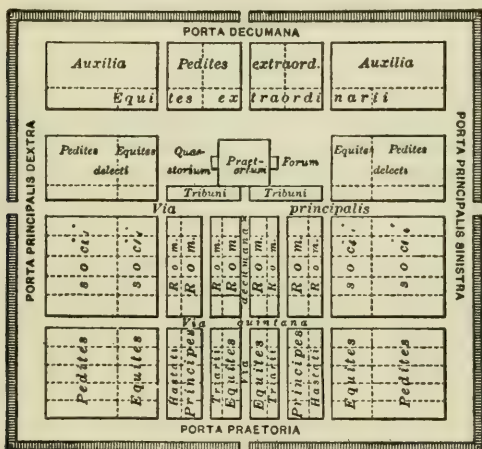 PORTA DECUMANA
Auxilia Pedites extraord. Auxilia
Equites extraordinarii
PORTA PRINCIPALIS DEXTRA
PORTA PRINCIPALIS SINISTRA
Pedites Equites
delecti
Quaestorium
Praetorium
Forum
Equites Pedites
delecti
Tribuni Tribuni
Via principalis
socii socii Rom. Rom. Rom. Rom. Rom. Rom. Rom. Rom. socii socii
decumana
Via quintana
Via
Pedites Equites Hastati Principes Triarii Equites Equites Triarii Principes Hastati Equites Pedites
PORTA PRAETORIA